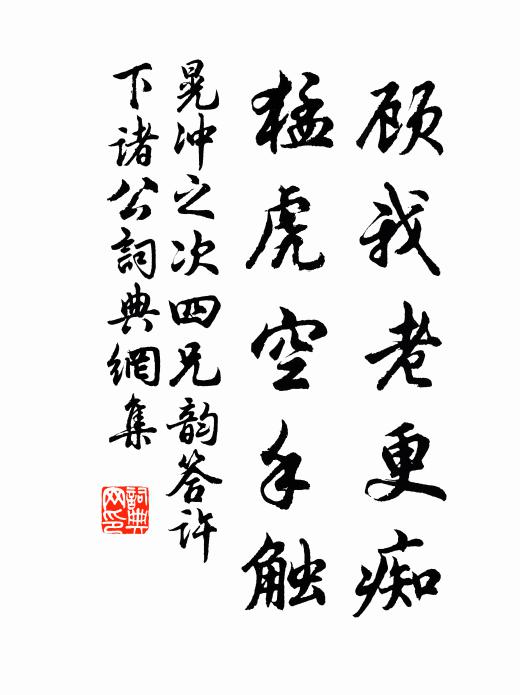 顾我老更痴
猛虎空手触
晃冲之次四兄韵答许
下诸公詞典網集
詞典
网印